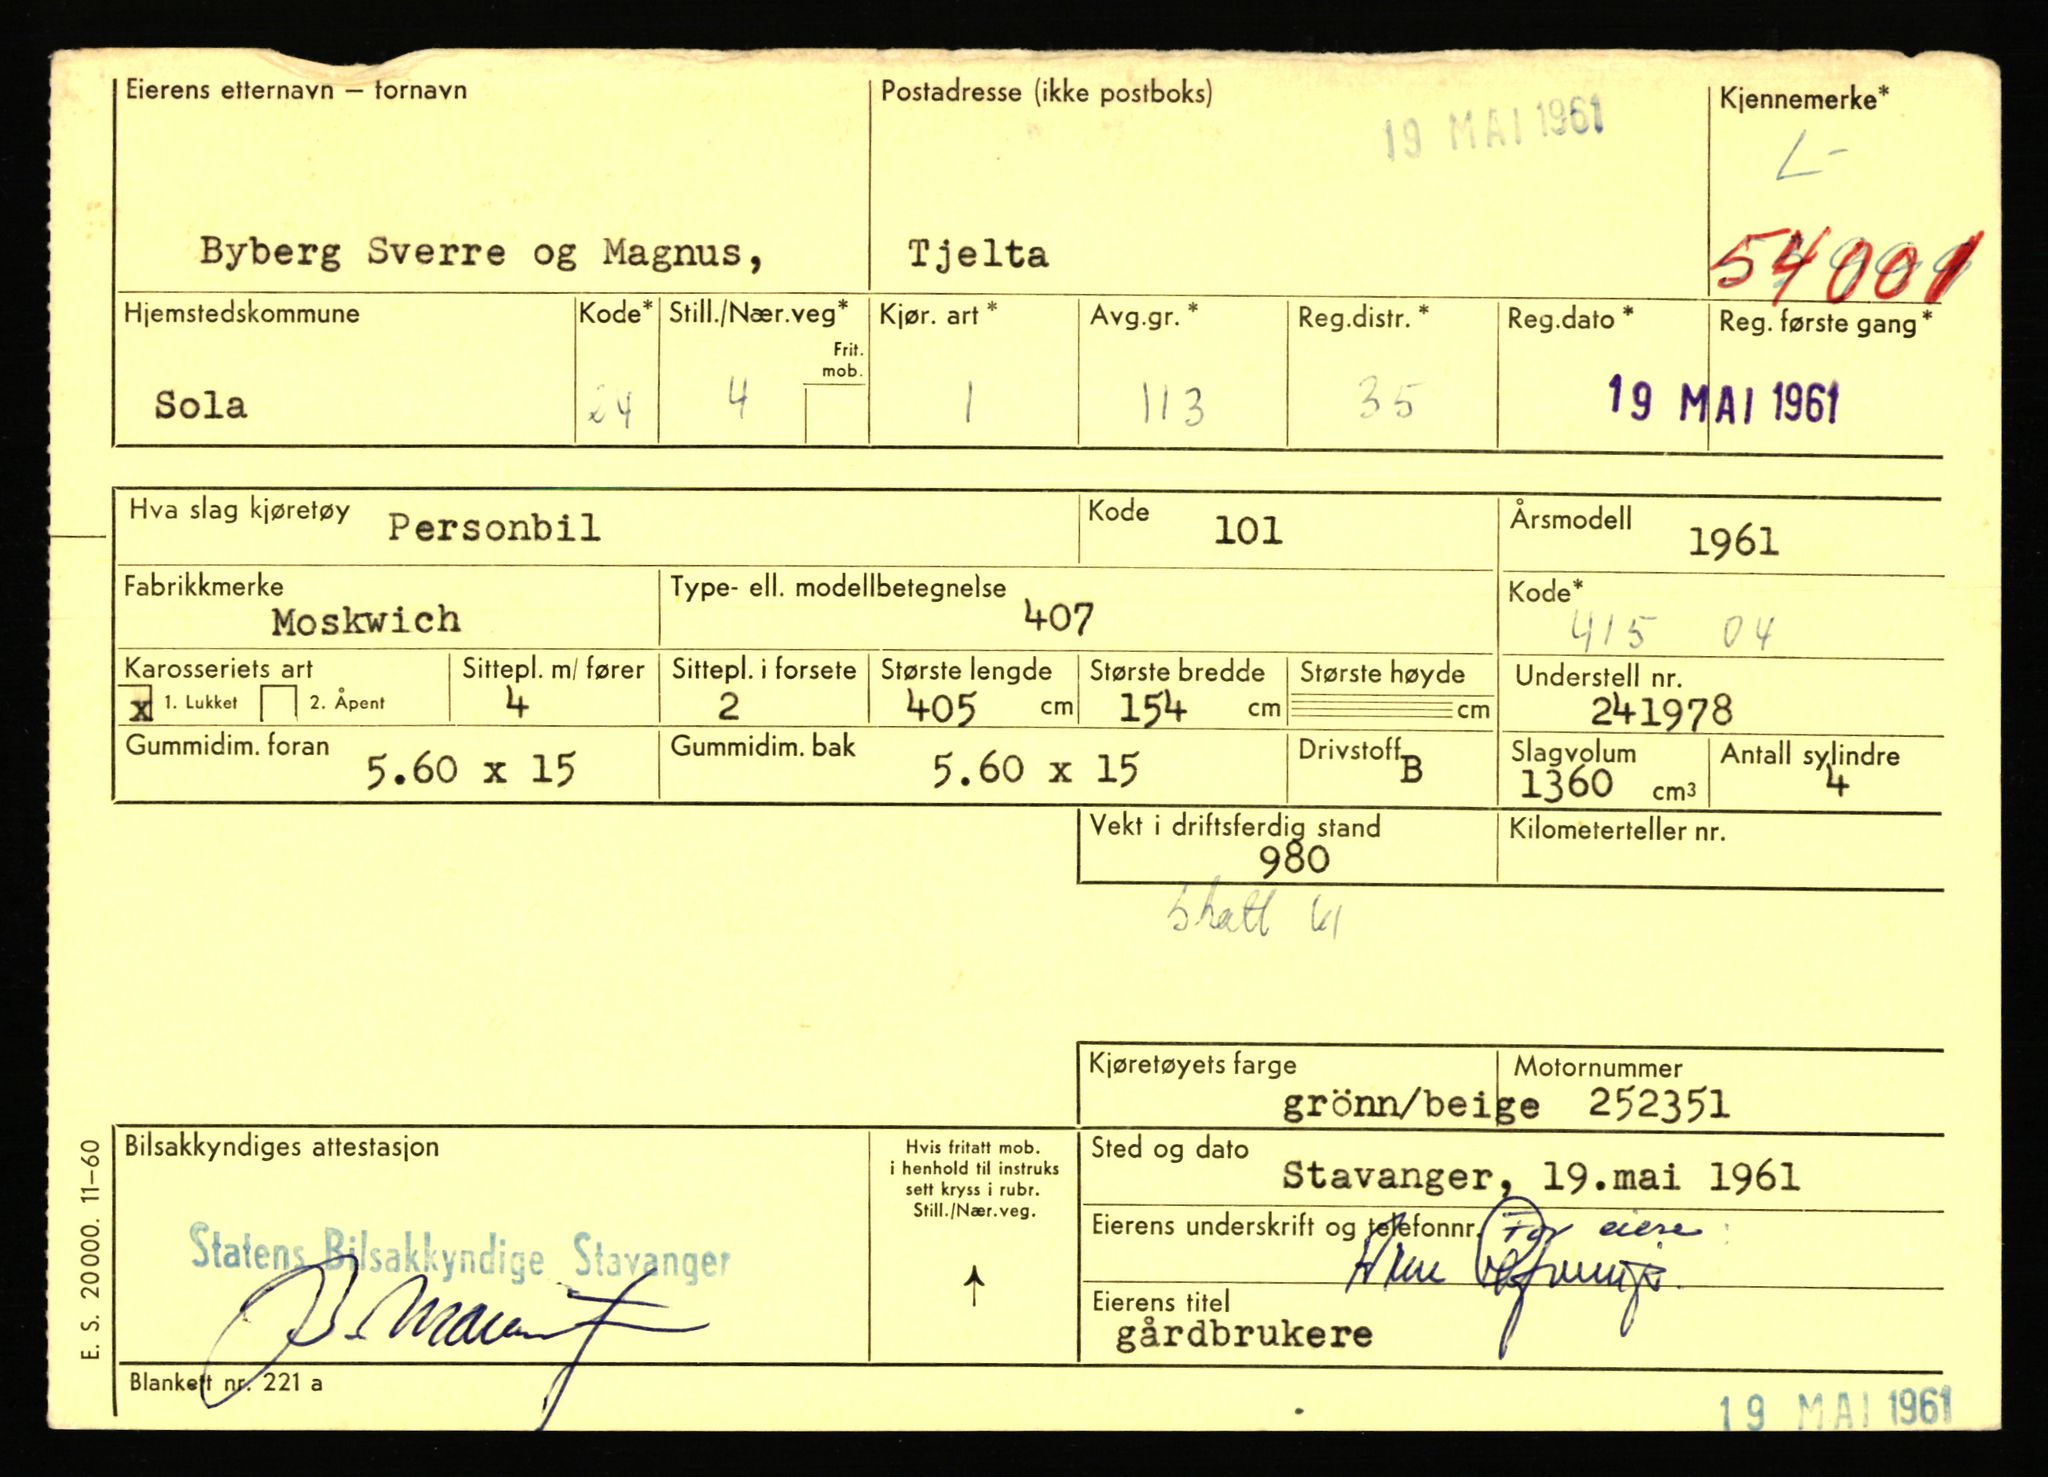 Eierens etternavn – fornavn
Postadresse (ikke postboks)
19 MAI 1961
Kjennemerke*
L-
Byberg Sverre og Magnus,
Tjelta
54001
Hjemstedskommune
Kode*
Still./Nær.veg*
Frit. mob.
Kjør. art*
Avg.gr.*
Reg.distr.*
Reg.dato*
Reg. første gang*
Sola
24
4
1
113
35
19 MAI 1961
Hva slag kjøretøy
Personbil
Kode
101
Årsmodell
1961
Fabrikkmerke
Moskwich
Type- ell. modellbetegnelse
407
Kode*
415 04
Karosseriets art
x 1. Lukket 2. Åpent
Sittepl. m/ fører
4
Sittepl. i forsete
2
Største lengde
405 cm
Største bredde
154 cm
Største høyde
cm
Understell nr.
241978
Gummidim. foran
5.60 x 15
Gummidim. bak
5.60 x 15
Drivstoff
B
Slagvolum
1360 cm³
Antall sylindre
4
Vekt i driftsferdig stand
980
Kilometerteller nr.
skatt 61
Kjøretøyets farge
grönn/beige
Motornummer
252351
Bilsakkyndiges attestasjon
Statens Bilsakkyndige Stavanger
Hvis fritatt mob.
i henhold til instruks
sett kryss i rubr.
Still./Nær.veg.
Sted og dato
Stavanger, 19.mai 1961
Eierens underskrift og telefonnr.
For eiere
Eierens titel
gårdbrukere
E. S. 20000. 11–60
Blankett nr. 221 a
19 MAI 1961